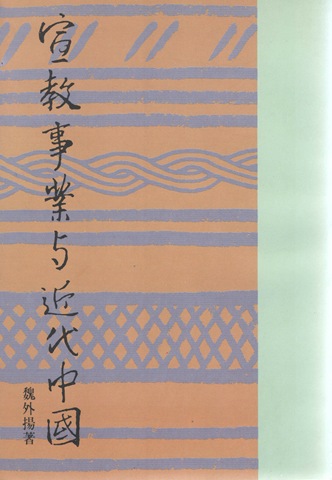 宣教事業与近代中國
魏外揚著